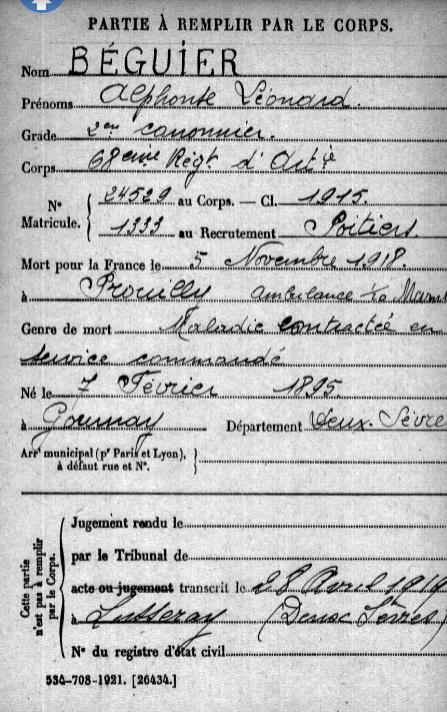 PARTIE À REMPLIR PAR LE CORPS.
Nom BÉGUIER
Prénoms Alphonse Léonard.
Grade 2me canonnier.
Corps 68eme Régt d'Artie
N° Matricule. 24529 au Corps. — Cl. 1915.
1333 au Recrutement Poitiers
Mort pour la France le 5 Novembre 1918.
à Prouilly Ambulance Marne
Genre de mort Maladie contractée en
service commandé
Né le 7 Février 1895.
à Gournay Département Deux-Sèvres
Arrt municipal (pr Paris et Lyon), à défaut rue et N°.
Cette partie n'est pas à remplir par le Corps.
Jugement rendu le
par le Tribunal de
acte ou jugement transcrit le 28 Avril 1919
à Lusseray (Deux Sèvres)
N° du registre d'état civil
534-708-1921. [26434.]